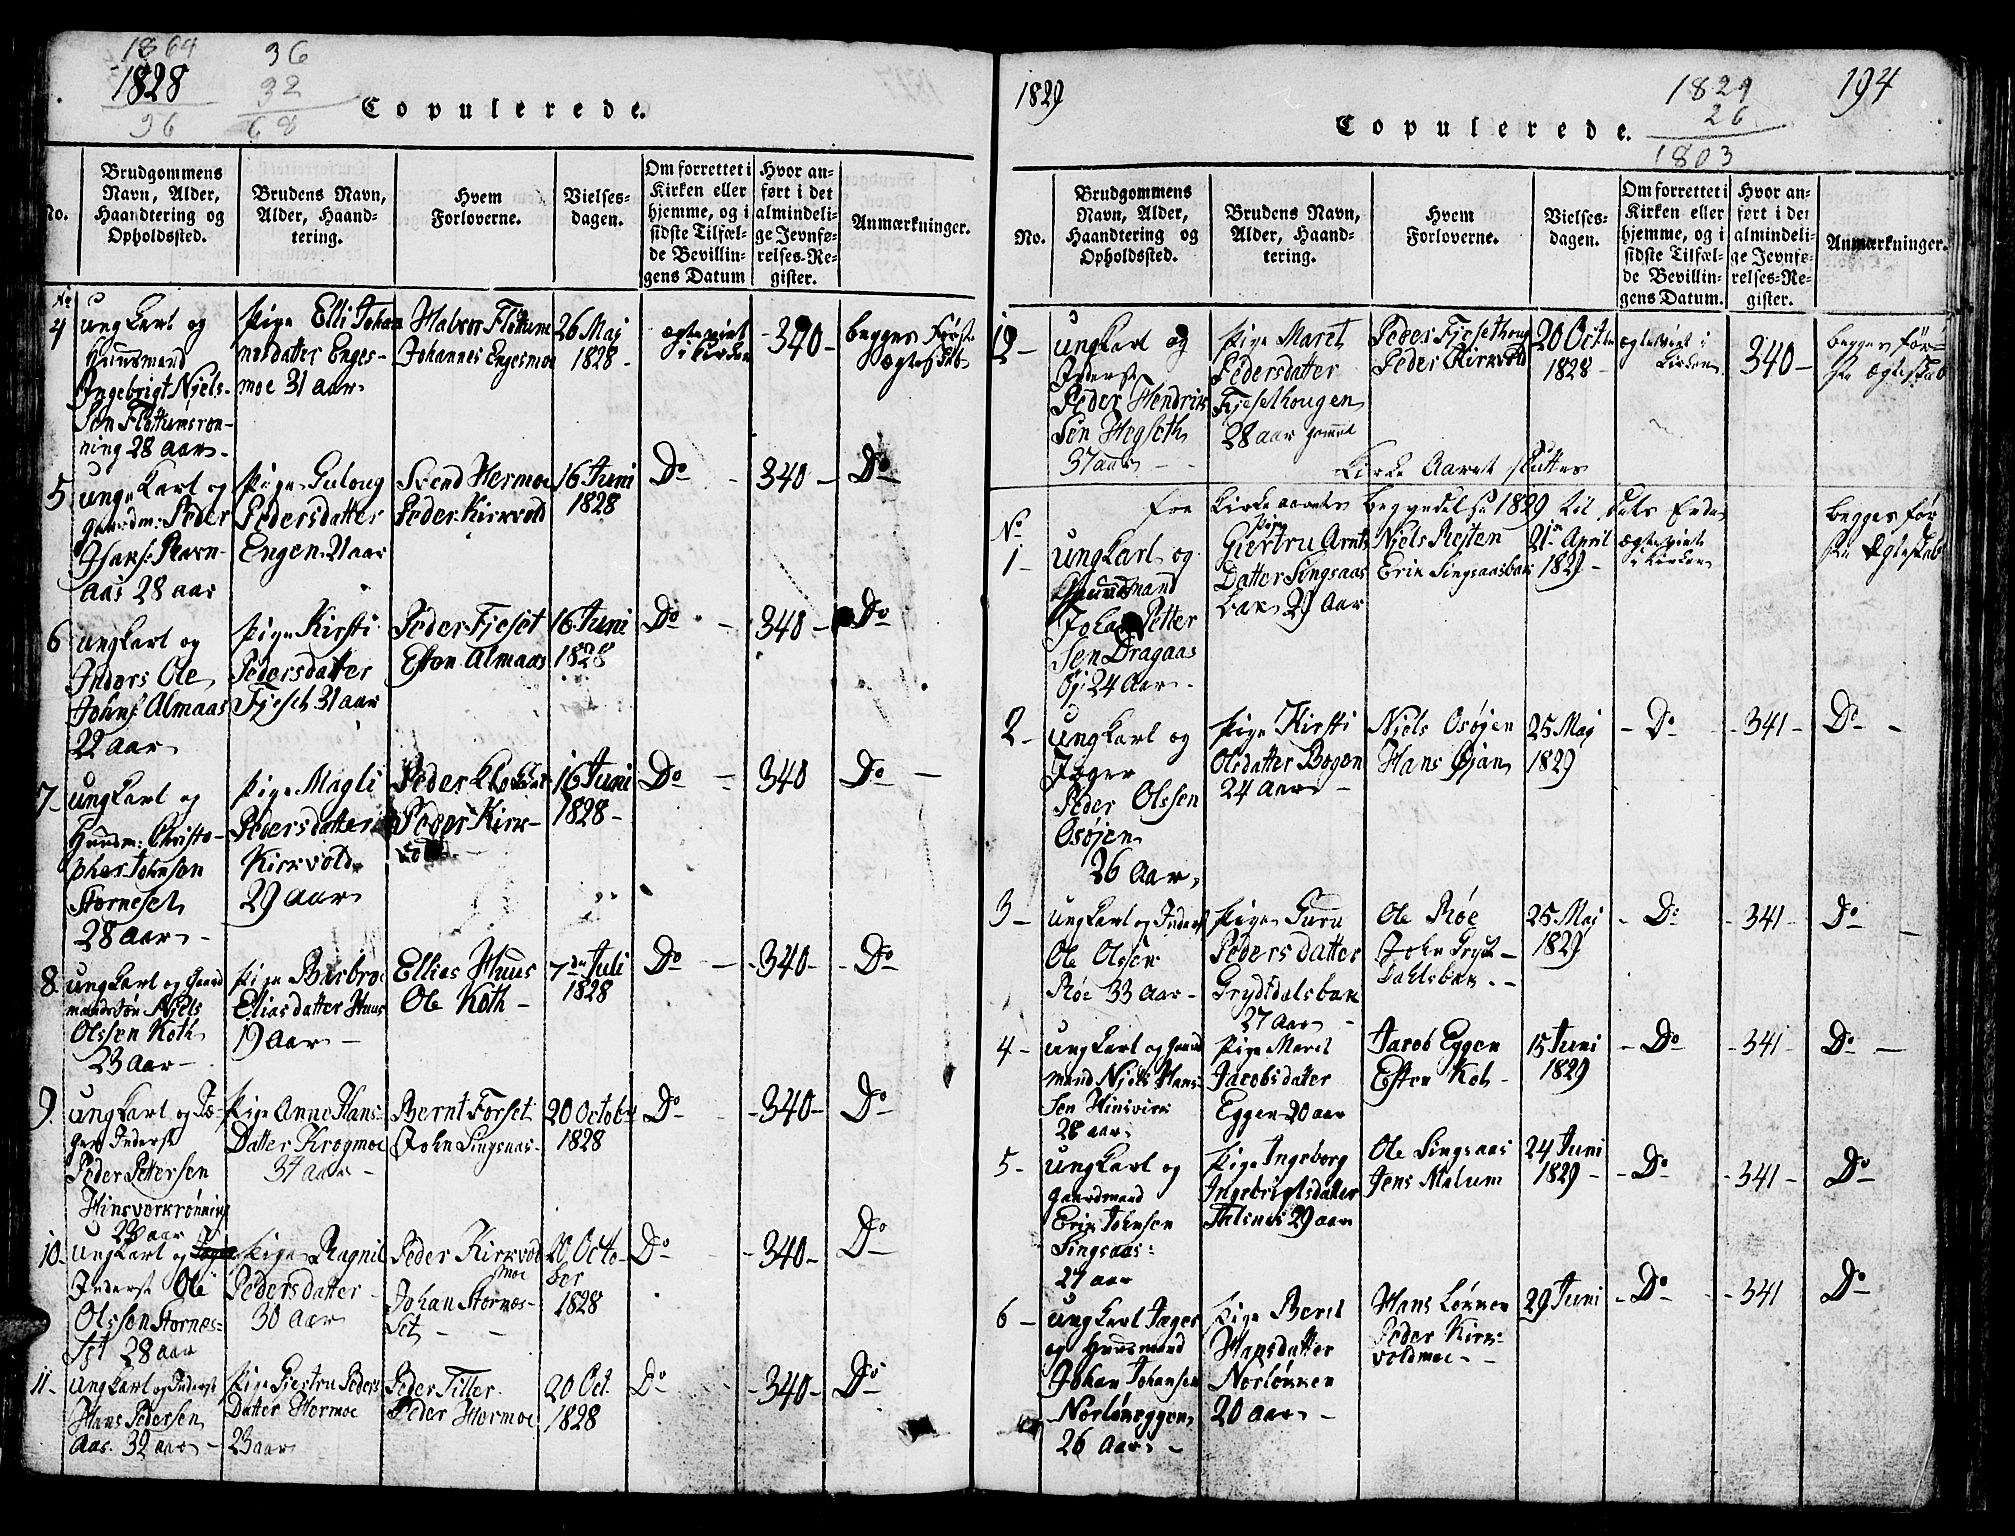 1864
1828
36
36
32
68
Copulerede.
No.
Brudgommens
Navn, Alder,
Haandtering og
Opholdssted.
Brudens Navn,
Alder, Haand-
tering.
Hvem
Forloverne.
Vielses-
dagen.
Om forrettet i
Kirken eller
hjemme, og i
sidste Tilfæl-
de Bevillin-
gens Datum
Hvor an-
ført i det
almindeli-
ge Jevnfø-
relses-Re-
gister.
Anmærkninger.
No
4
ungkarl og
Huusmand
Ingebrigt Njels-
Søn Flottumsrøn-
ning 28 aar
Pige Elli Johan
nesdatter Enges-
moe 31 aar
Halvor Flottum
Johannes Engesmoe
26 Maj
1828
ægteviet
i kirken
340
begges Første
Ægteskab
5
unge karl og
gaardm: Peder
Isaks: Ravn-
aas 28 aar
Pige Guloug
Pedersdatter
Engen 21 aar
Svend Hermoe
Peder Kirkvold
16 Juni
1828
Do
340
Do
6
ungkarl og
Inders Ole
Johns: Almaas
22 aar
Pige Kirsti
Pedersdatter
Fjeset 31 aar
Peder Fjeset
Esten Almaas
16 Juni
1828
Do
340
Do
7
ungkarl og
Huusm: Christo-
pher Johnsen
Storneset
28 aar
Pige Magli
Pedersdatter
Kirkvold
29 aar
Peder Klokker
Peder Kirk-
vold
16 Juni
1828
Do
340
Do
8
ungkarl og Gaard
mandssøn Njels
Olssen Koth
23 aar
Pige Barbroe
Eliasdatter Huus
19 Aar
Ellias Huus
Ole Koth
7de Juli
1828
Do
340
Do
9.
ungkarl og Jæ-
ger Inderst
Peder Pettersen
Hinsverkrønning
23 aar
Pige Anne Hans-
Datter Krogmoe
37 aar
Bernt Forset
John Singsaas
20 October
1828
Do
340
Do
10
ungkarl og
Inderst Ole
Olssen Stornes-
Set 28 aar
Pige Ragnil
Pedersdatter
30 aar
Peder Kirkvold
moe
Johan Stornes-
Set
20 Octo-
ber
1828
Do
340
Do
11
ungkarl og Inderst
Hans Pedersen
Aas 32 aar
Pige Giertru Peders
Datter Hermoe
23 aar
Peder Tiller
Peder Hermoe
20 Oct.
1828
Do
340
Do
1829
Copulerede.
1829
26
1803
194
No.
Brudgommens
Navn, Alder,
Haandtering og
Opholdssted.
Brudens Navn,
Alder, Haand-
tering.
Hvem
Forloverne.
Vielses-
dagen.
Om forrettet i
Kirken eller
hjemme, og i
sidste Tilfæl-
de Bevillin-
gens Datum.
Hvor an-
ført i det
almindeli-
ge Jevnfø-
relses-Re-
gister.
Anmærkninger.
12
ungkarl og
Inderst
Peder Hendrik
Sen Hegseth
37 aar
Pige Maret
Pedersdatter
Fjesethougen
28 aar gammel
Peder Fjesethoug
Peder Kirkvold
20 Octo
1828
ægteviet i
kirken
340
begges før-
ste ægteskab
Kirke Aaret sluttes
fra kirkeaarets begyndelse 1829 til dets Ende
No
1
ungkarl og
Huusmand
Johan Petter
Sen Dragaas
Øj: 24 aar
Pige
Giertru Arnts
Datter Singsaas
bak 29 Aar
Njels Rejten
Erik Singsaasbak
21de April
1829
ægteviet
i kirken
begges før
ste Ægteskab
2
ungkarl og
Jæger
Peder Olssen
Osøjen
26 aar
Pige Kirsti
Olsdatter Bogen
24 aar
Njels Osøjen
Hans Øjan
25 Maj
1829
Do
341
Do
3
ungkarl og Inderst
Ole Olssen
Røe 33 aar
Pige Guru
Pedersdatter
Grydtdalsbak
27 aar
Ole Røe
John Gryt-
Dahlsbak
25 Maj
1829
Do
341
Do
4
ungkarl og Gaard
mand Njels Hans-
Sen Hinsvirk
28 aar
Pige Maret
Jacobsdatter
Eggen 20 aar
Jacob Eggen
Esten Kot
15 Juni
1829
Do
341
Do
5
ungkarl og
Gaardmand
Erik Johnsen
Singsaas:
27 aar
Pige Ingeborg
Ingebrigtsdatter
29 aar
Ole Singsaas
Jens Mælum
24 Juni
1829
Do
341
Do
6
ungkarl Jæger
og Huusmand
Johan Johansen
Norløneggen
26 aar
Pige Beret
Hansdatter
Norløkken
20 aar
Hans Løkken
Peder Kirk-
voldmoe
29 Juni
Do
341
Do